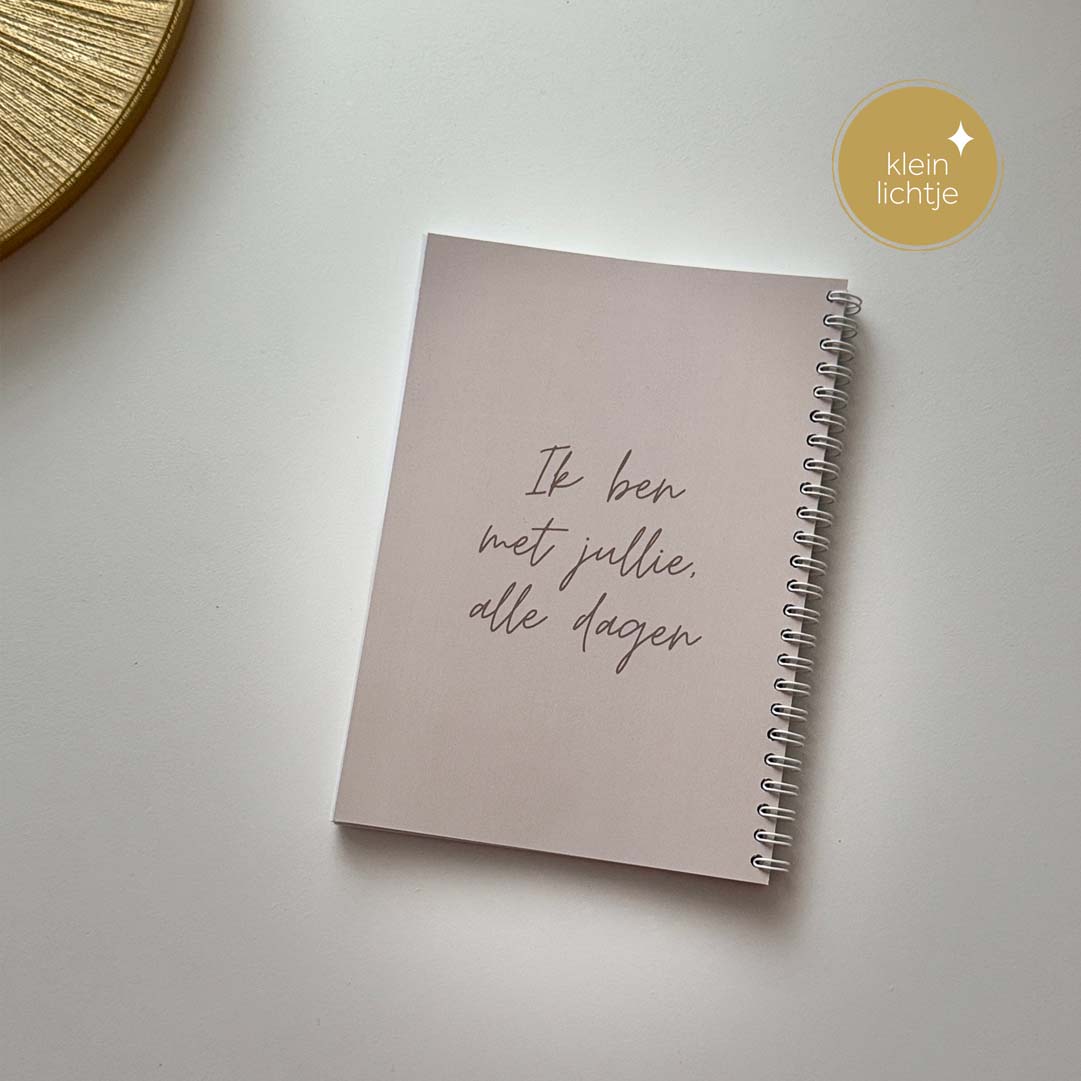 klein
lichtje
Ik ben
met jullie,
alle dagen